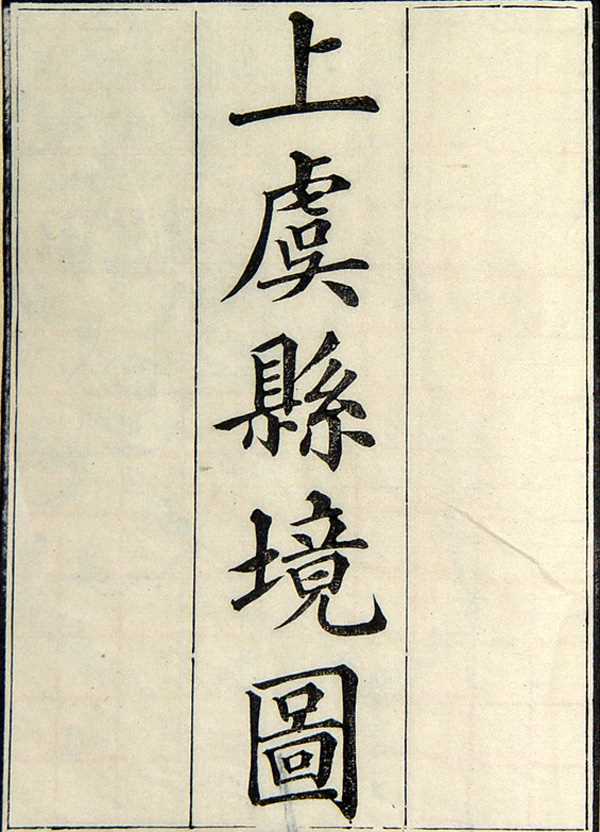 上虞縣境圖